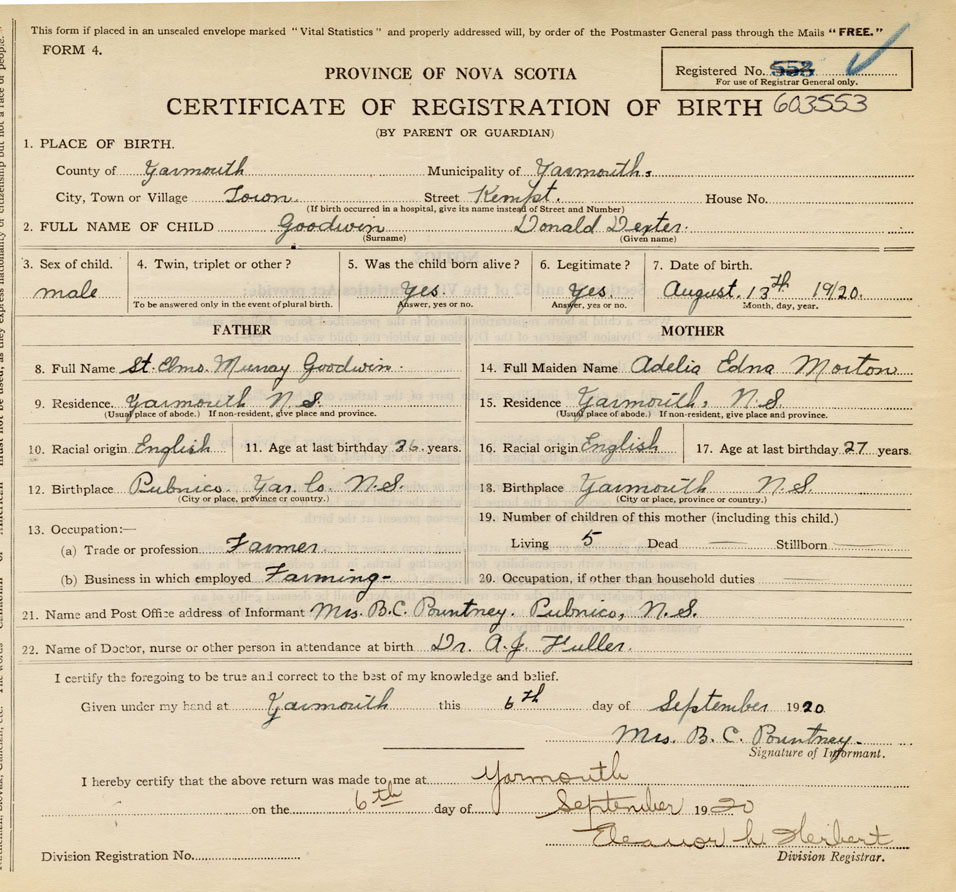 This form if placed in an unsealed envelope marked "Vital Statistics" and properly addressed will, by order of the Postmaster General pass through the Mails "FREE."
FORM 4.
Registered No. 552
For use of Registrar General only.
PROVINCE OF NOVA SCOTIA
CERTIFICATE OF REGISTRATION OF BIRTH 603553
(BY PARENT OR GUARDIAN)
1. PLACE OF BIRTH.
County of Yarmouth Municipality of Yarmouth.
City, Town or Village Town. Street Kempt. House No.
(If birth occurred in a hospital, give its name instead of Street and Number)
2. FULL NAME OF CHILD Goodwin Donald Dexter.
(Surname) (Given name)
3. Sex of child. 4. Twin, triplet or other? 5. Was the child born alive? 6. Legitimate? 7. Date of birth.
male Yes. Yes. August. 13th 1920.
To be answered only in the event of plural birth. Answer, yes or no. Answer, yes or no. Month, day, year.
FATHER MOTHER
8. Full Name St. Elmo. Murray Goodwin. 14. Full Maiden Name Adelia Edna Morton
9. Residence. Yarmouth N.S. 15. Residence Yarmouth, N.S.
(Usual place of abode.) If non-resident, give place and province. (Usual place of abode.) If non-resident, give place and province.
10. Racial origin English 11. Age at last birthday 36 years. 16. Racial origin English 17. Age at last birthday 27 years.
12. Birthplace Pubnico. Yar. Co. N.S. 18. Birthplace Yarmouth N.S.
(City or place, province or country.) (City or place, province or country.)
13. Occupation:— 19. Number of children of this mother (including this child.)
(a) Trade or profession Farmer Living 5 Dead — Stillborn —
(b) Business in which employed Farming- 20. Occupation, if other than household duties —
21. Name and Post Office address of Informant Mrs. B.C. Pountney. Pubnico, N.S.
22. Name of Doctor, nurse or other person in attendance at birth Dr. A.J. Fuller.
I certify the foregoing to be true and correct to the best of my knowledge and belief.
Given under my hand at Yarmouth this 6th day of September 1920.
Mrs. B. C. Pountney.
Signature of Informant.
I hereby certify that the above return was made to me at Yarmouth
on the 6th day of September 1920
Eleanor L. Herbert
Division Registration No. Division Registrar.